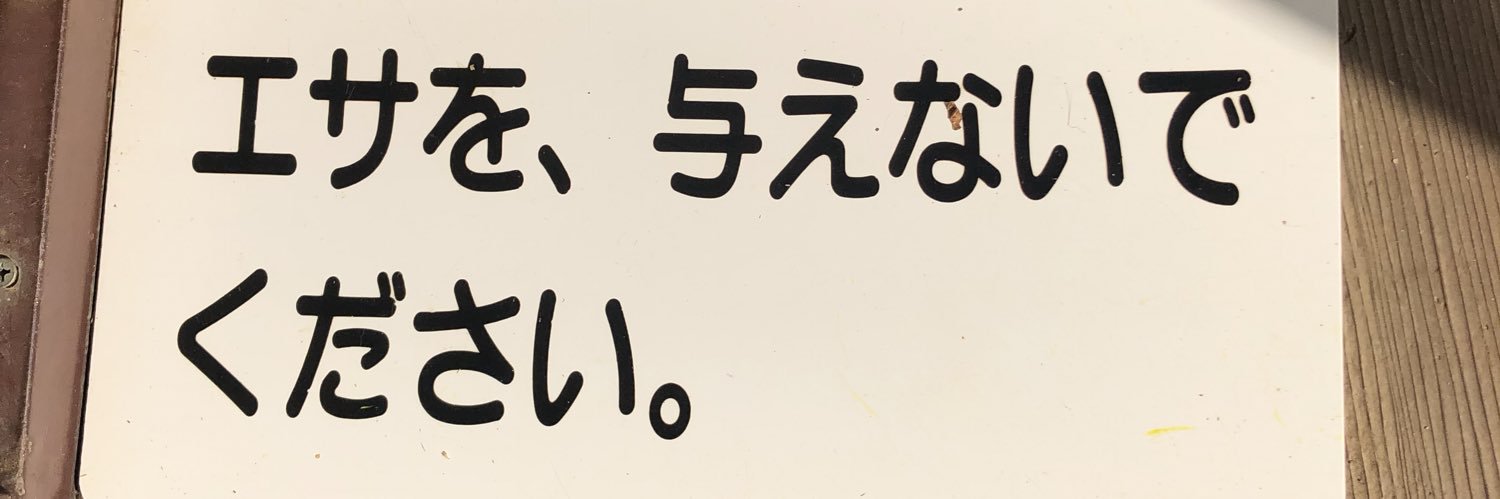 エサを、与えないで
ください。